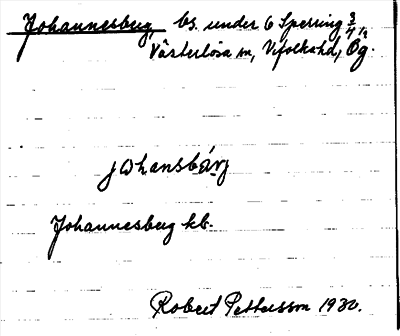 Johannesberg, bs. under 6 Sperring 3/4 1/2
Västerlösa sn, Vifolkahd, Ög.
johansbärj
Johannesberg kb.
Robert Pettersson 1930.